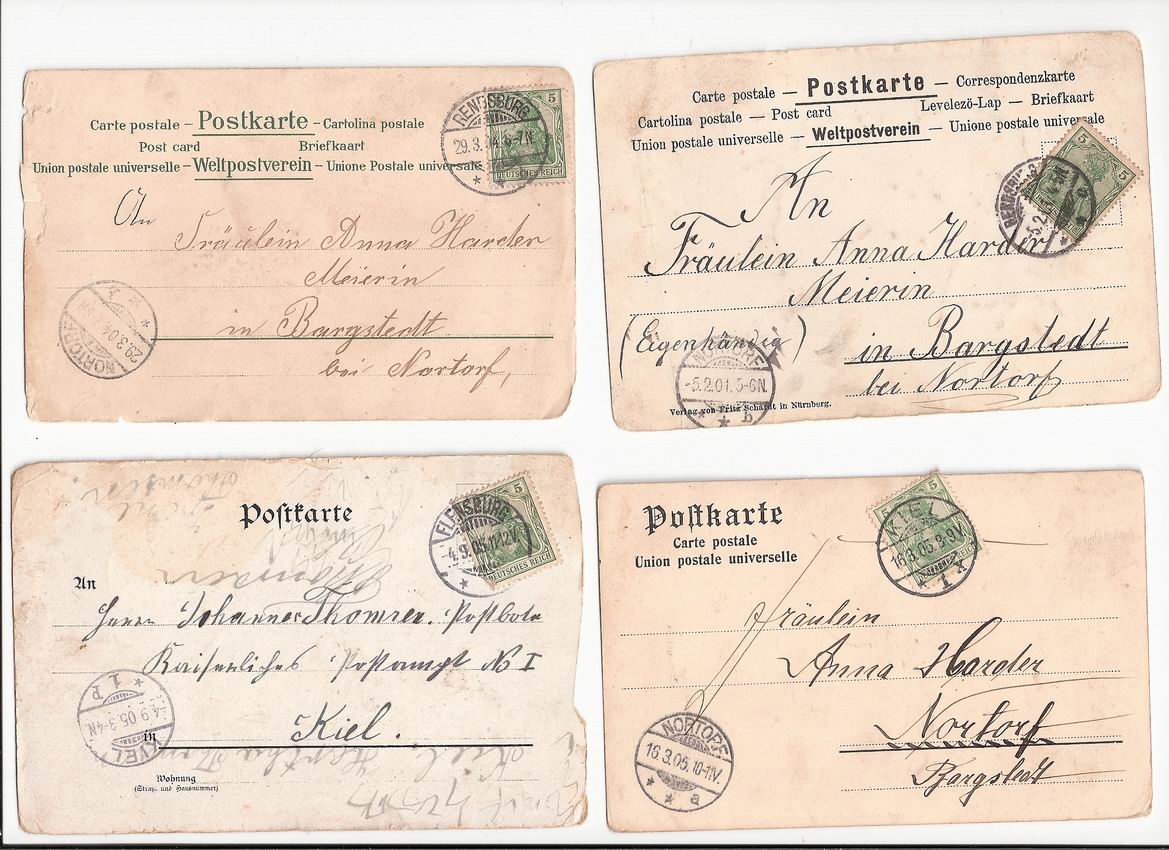 Carte postale – Postkarte – Cartolina postale
Post card Briefkaart
Union postale universelle – Weltpostverein – Unione Postale universale
RENDSBURG
29.3.04.6-7N.
5
DEUTSCHES REICH
An
Fräulein Anna Harder
Meierin
in Bargstedt
bei Nortorf,
NORTORF
29.3.04
Carte postale – Postkarte – Correspondenzkarte
Cartolina postale — Post card Levelezö-Lap — Briefkaart
Union postale universelle – Weltpostverein – Unione postale universale
5 5
RENDSBURG
An
Fräulein Anna Harder
Meierin
(Eigenhändig)
in Bargstedt
bei Nortorf
NORTORF
-5.2.01.5-6N.
b
Verlag von Fritz Schardt in Nürnberg.
Postkarte
5
FLENSBURG
4.9.05.11-12V.
DEUTSCHES REICH
An
Herrn Johannes Thomsen. Postbote
Kaiserliches Postampt No I
in Kiel.
KIEL
1 P
-4.9.05.3-4N.
Wohnung
(Straße und Hausnummer)
Postkarte
Carte postale
Union postale universelle
5
KIEL
16.3.05.8-9V.
Fräulein
Anna Harder
Nortorf
Bargstedt
NORTORF
16.3.05.10-11V.
a